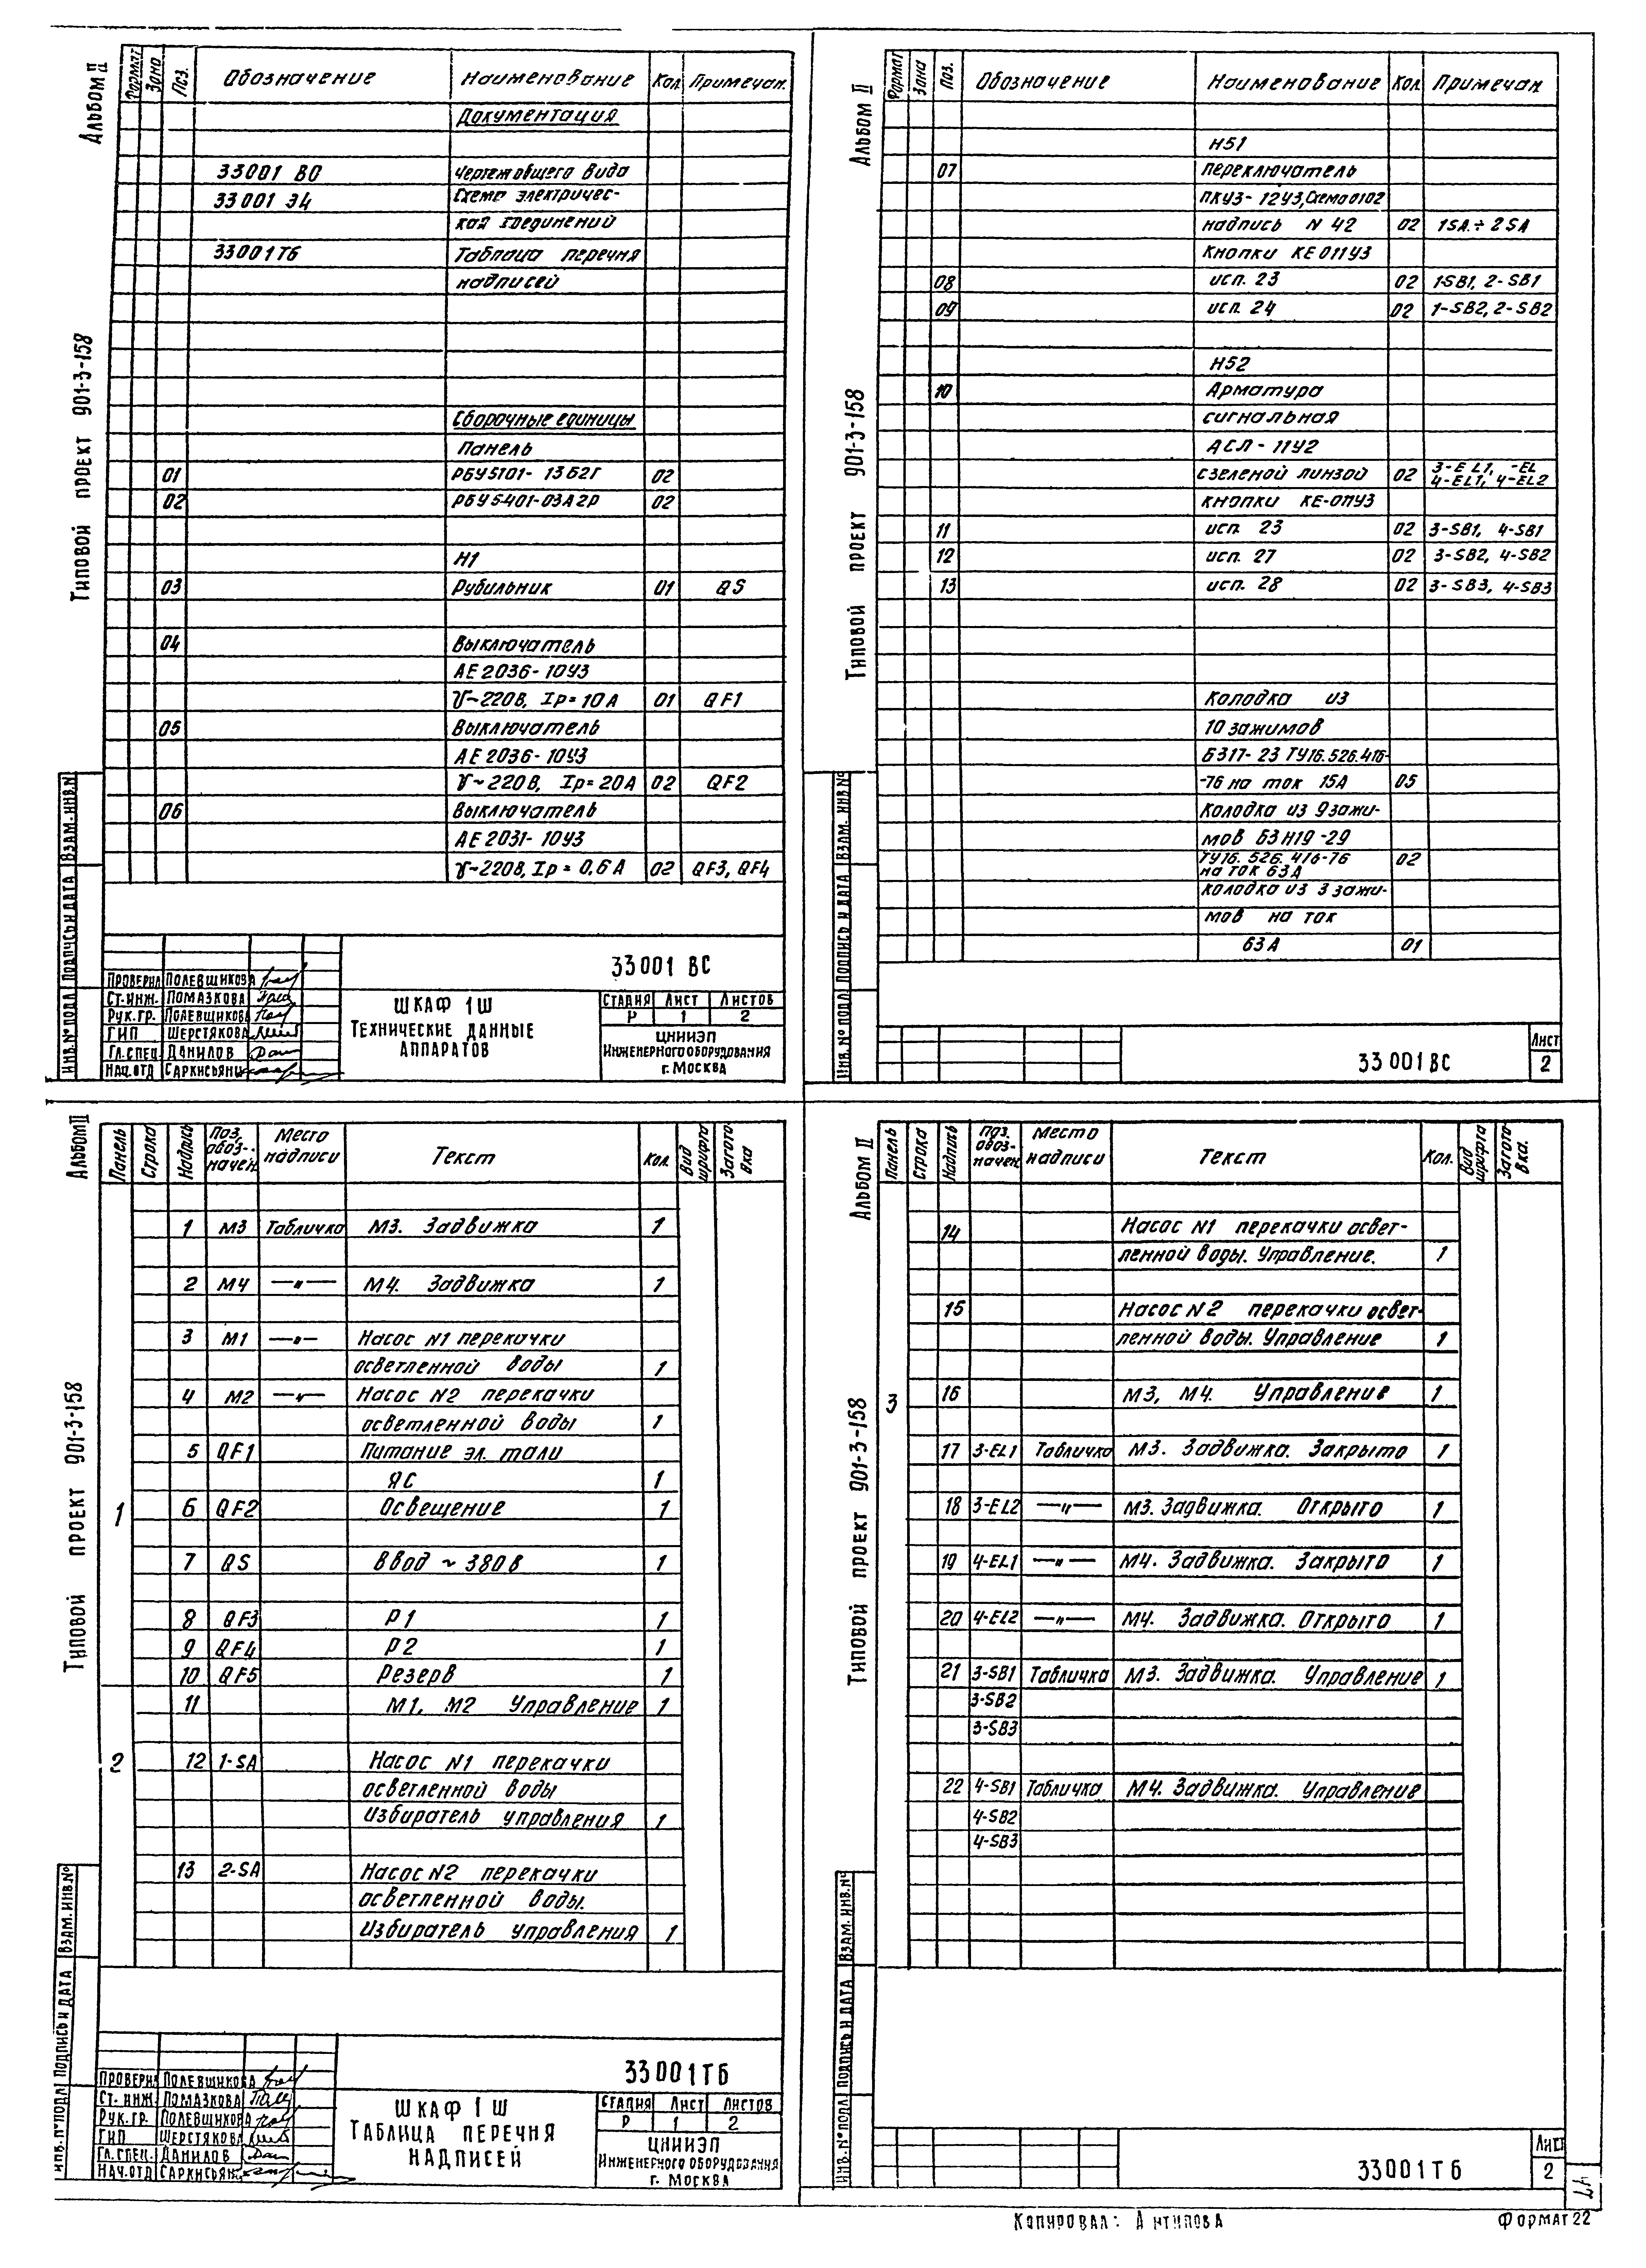 Альбом II
Типовой проект 901-3-158
Формат Зона Поз. Обозначение Наименование Кол. Примечан.
Документация
33001 ВО Чертеж общего вида
33001 Э4 Схема электричес-
кая соединений
33001ТБ Таблица перечня
надписей
Сборочные единицы
Панель
01 РБУ5101-13Б2Г 02
02 РБУ5401-03А2Р 02
Н1
03 Рубильник 01 QS
04 Выключатель
АЕ2036-10У3
~220В, Iр=10А 01 QF1
05 Выключатель
АЕ2036-10У3
~220В, Iр=20А 02 QF2
06 Выключатель
АЕ2031-10У3
~220В, Iр=0,6А 02 QF3, QF4
33001 ВС
Проверил Полевщикова
Ст.инж. Помазкова
Рук.гр. Полевщикова
ГИП Шерстякова
Гл.спец. Данилов
Нач.отд Саркисьянц
Шкаф 1Ш
Технические данные
аппаратов
Стадия Лист Листов
Р 1 2
ЦНИИЭП
Инженерного оборудования
г. Москва
Инв.№подл. Подпись и дата Взам.инв.№
Альбом II
Типовой проект 901-3-158
Формат Зона Поз. Обозначение Наименование Кол. Примечан.
Н51
07 Переключатель
ПКУ3-12У3, Схема 0102
надпись N 42 02 1SA÷2SA
Кнопки КЕ011У3
08 исп. 23 02 1-SB1, 2-SB1
09 исп. 24 02 1-SB2, 2-SB2
Н52
10 Арматура
сигнальная
АСЛ-11У2
с зеленой линзой 02 3-EL1, -EL
4-EL1, 4-EL2
кнопки КЕ-011У3
11 исп. 23 02 3-SB1, 4-SB1
12 исп. 27 02 3-SB2, 4-SB2
13 исп. 28 02 3-SB3, 4-SB3
Колодка из
10 зажимов
БЗ17-23 ТУ16.526.416-
-76 на ток 15А 05
Колодка из 9 зажи-
мов БЗН19-29
ТУ16.526.416-76 02
на ток 63А
Колодка из 3 зажи-
мов на ток
63А 01
Инв.№подл. Подпись и дата Взам.инв.№
33001ВС
Лист
2
Альбом II
Типовой проект 901-3-158
Панель Строка Надпись Поз. обоз-начен. Место надписи Текст Кол. Вид шрифта Загото-вка
1 М3 Табличка М3. Задвижка 1
2 М4 —"— М4. Задвижка 1
3 М1 —"— Насос N1 перекачки
осветленной воды 1
4 М2 —"— Насос N2 перекачки
осветленной воды 1
5 QF1 Питание эл. тали
ЯС 1
1 6 QF2 Освещение 1
7 QS Ввод ~380В 1
8 QF3 Р1 1
9 QF4 Р2 1
10 QF5 Резерв 1
11 М1, М2 Управление 1
2 12 1-SA Насос N1 перекачки
осветленной воды
Избиратель управления 1
13 2-SA Насос N2 перекачки
осветленной воды.
Избиратель управления 1
33001ТБ
Проверил Полевщикова
Ст. инж. Помазкова
Рук.гр. Полевщикова
ГИП Шерстякова
Гл.спец. Данилов
Нач.отд Саркисьянц
Шкаф 1Ш
Таблица перечня
надписей
Стадия Лист Листов
Р 1 2
ЦНИИЭП
Инженерного оборудования
г. Москва
Инв.№подл. Подпись и дата Взам.инв.№
Альбом II
Типовой проект 901-3-158
Панель Строка Надпись Поз. обоз-начен. Место надписи Текст Кол. Вид шрифта Загото-вка.
14 Насос N1 перекачки освет-
ленной воды. Управление. 1
15 Насос N2 перекачки освет-
ленной воды. Управление 1
3 16 М3, М4. Управление 1
17 3-EL1 Табличка М3. Задвижка. Закрыто 1
18 3-EL2 —"— М3. Задвижка. Открыто 1
19 4-EL1 —"— М4. Задвижка. Закрыто 1
20 4-EL2 —"— М4. Задвижка. Открыто 1
21 3-SB1 Табличка М3. Задвижка. Управление 1
3-SB2
3-SB3
22 4-SB1 Табличка М4. Задвижка. Управление
4-SB2
4-SB3
Инв.№подл Подпись и дата Взам.инв.№
33001ТБ
Лист
2
Копировал: Антипова
Формат 22